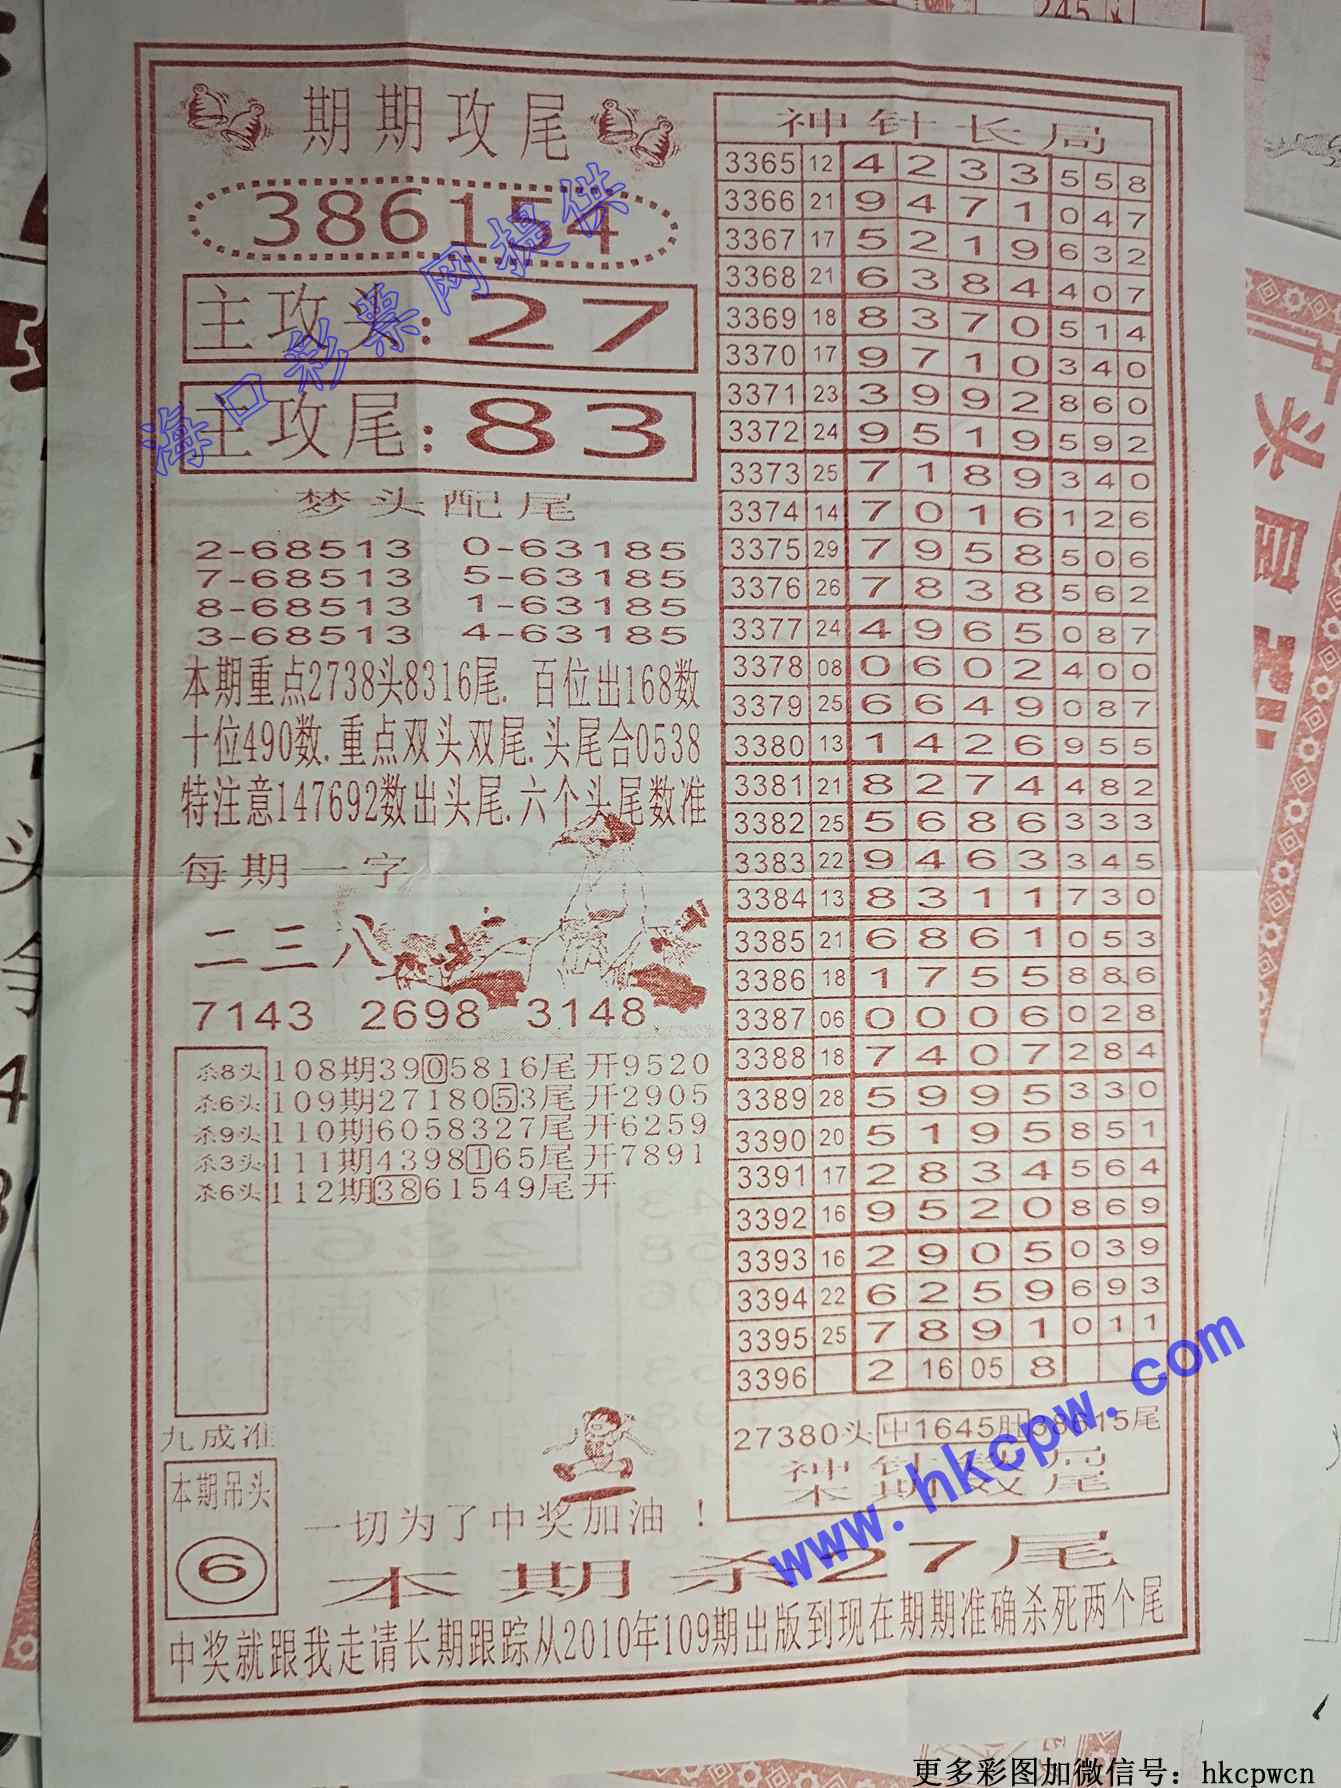 期期攻尾
386154
主攻头:27
主攻尾:83
梦头配尾
2-68513 0-63185
7-68513 5-63185
8-68513 1-63185
3-68513 4-63185
本期重点2738头8316尾. 百位出168数
十位490数.重点双头双尾.头尾合0538
特注意147692数出头尾.六个头尾数准
每期一字
二三八
7143 2698 3148
杀8头 108期3905816尾开9520
杀6头 109期2718053尾开2905
杀9头 110期6058327尾开6259
杀3头 111期4398165尾开7891
杀6头 112期3861549尾开
九成准
本期吊头
6
一切为了中奖加油！
神针长局
3365 12 4 2 3 3 5 5 8
3366 21 9 4 7 1 0 4 7
3367 17 5 2 1 9 6 3 2
3368 21 6 3 8 4 4 0 7
3369 18 8 3 7 0 5 1 4
3370 17 9 7 1 0 3 4 0
3371 23 3 9 9 2 8 6 0
3372 24 9 5 1 9 5 9 2
3373 25 7 1 8 9 3 4 0
3374 14 7 0 1 6 1 2 6
3375 29 7 9 5 8 5 0 6
3376 26 7 8 3 8 5 6 2
3377 24 4 9 6 5 0 8 7
3378 08 0 6 0 2 4 0 0
3379 25 6 6 4 9 0 8 7
3380 13 1 4 2 6 9 5 5
3381 21 8 2 7 4 4 8 2
3382 25 5 6 8 6 3 3 3
3383 22 9 4 6 3 3 4 5
3384 13 8 3 1 1 7 3 0
3385 21 6 8 6 1 0 5 3
3386 18 1 7 5 5 8 8 6
3387 06 0 0 0 6 0 2 8
3388 18 7 4 0 7 2 8 4
3389 28 5 9 9 5 3 3 0
3390 20 5 1 9 5 8 5 1
3391 17 2 8 3 4 5 6 4
3392 16 9 5 2 0 8 6 9
3393 16 2 9 0 5 0 3 9
3394 22 6 2 5 9 6 9 3
3395 25 7 8 9 1 0 1 1
3396 2 16 05 8
27380头 中1645肚 38615尾
神针长局
本期双尾
本期杀27尾
中奖就跟我走请长期跟踪从2010年109期出版到现在期期准确杀死两个尾
海口彩票网提供
www.hkcpw.com
更多彩图加微信号：hkcpwcn